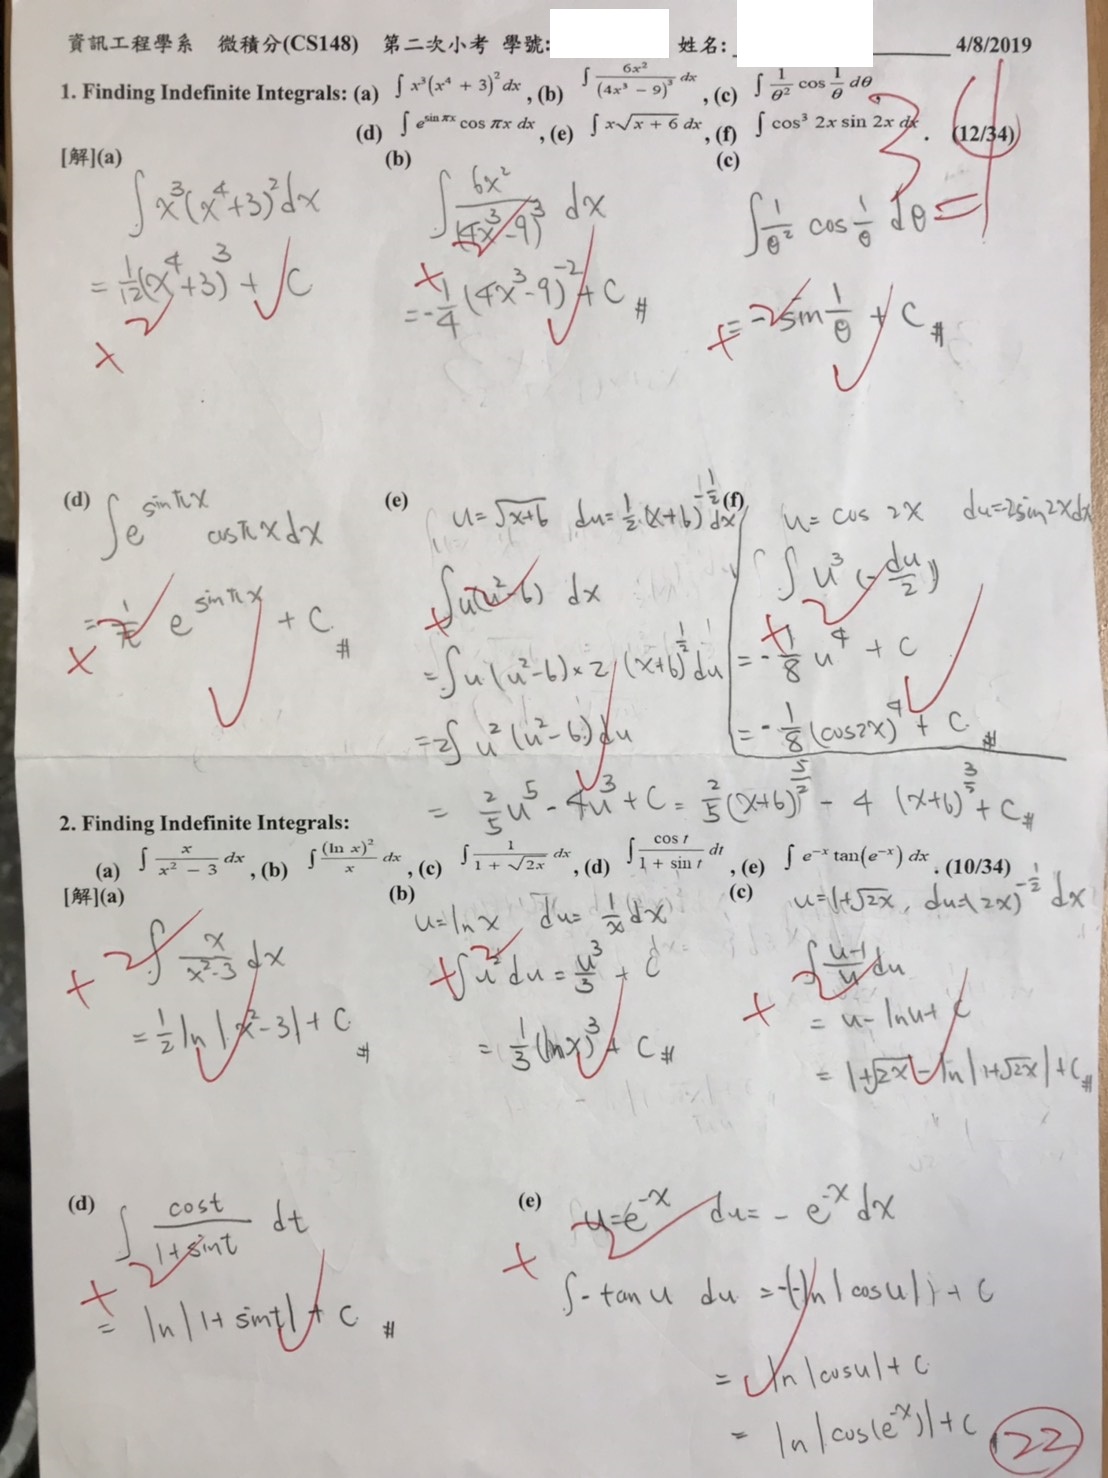 資訊工程學系 微積分(CS148) 第二次小考 學號: 姓名: 4/8/2019
1. Finding Indefinite Integrals: (a) ∫ x³(x⁴ + 3)² dx , (b) ∫ 6x²/(4x³ − 9)³ dx , (c) ∫ 1/θ² cos 1/θ dθ,
(d) ∫ e^(sin πx) cos πx dx , (e) ∫ x√(x + 6) dx , (f) ∫ cos³ 2x sin 2x dx . (12/34)
[解](a)
∫ x³(x⁴+3)² dx
= 1/12 (x⁴+3)³ + C
+2
(b)
∫ 6x²/(4x³-9)³ dx
= -1/4 (4x³-9)⁻² + C #
+2
(c)
∫ 1/θ² cos 1/θ dθ
= - sin 1/θ + C #
+2
(d)
∫ e^(sin πx) cos πx dx
= 1/π e^(sin πx) + C #
+2
(e)
u = √(x+6) du = 1/2 (x+6)^(-1/2) dx
∫ u(u²-6) dx
= ∫ u(u²-6) × 2 (x+6)^(1/2) du
= 2∫ u² (u²-6) du
= 2/5 u⁵ - 4u³ + C = 2/5 (x+6)^(5/2) - 4 (x+6)^(3/2) + C #
+2
(f)
u = cos 2x du = -2 sin 2x dx
∫ u³ (-du/2)
= -1/8 u⁴ + C
= -1/8 (cos2x)⁴ + C #
+2
2. Finding Indefinite Integrals:
(a) ∫ x/(x² − 3) dx , (b) ∫ (ln x)²/x dx , (c) ∫ 1/(1 + √2x) dx , (d) ∫ cos t/(1 + sin t) dt , (e) ∫ e⁻ˣ tan(e⁻ˣ) dx . (10/34)
[解](a)
∫ x/(x²-3) dx
= 1/2 ln |x²-3| + C #
+2
(b)
u = ln x du = 1/x dx
∫ u² du = u³/3 + C
= 1/3 (ln x)³ + C #
+2
(c)
u = 1+√2x , du = (2x)^(-1/2) dx
∫ (u-1)/u du
= u - ln u + C
= 1+√2x - ln |1+√2x| + C #
+2
(d)
∫ cos t/(1+sin t) dt
= ln |1+ sin t| + C #
+2
(e)
u = e⁻ˣ du = - e⁻ˣ dx
∫ - tan u du = -(-ln |cos u|) + C
= ln |cos u| + C
= ln |cos(e⁻ˣ)| + C
+2
22